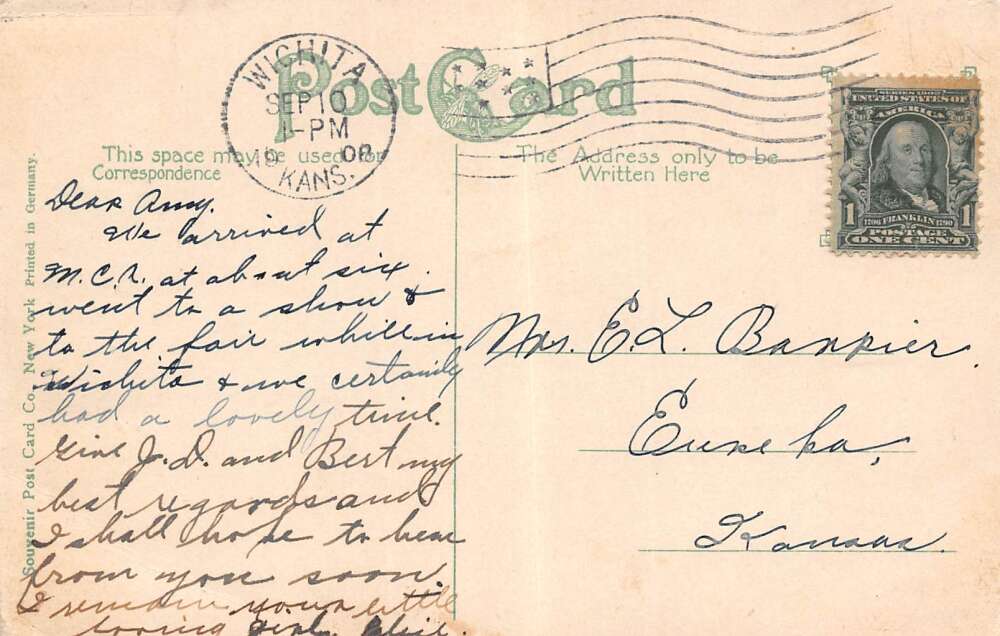 WICHITA
SEP 10
1-PM
1908
KANS.
Post Card
This space may be used for
Correspondence
The Address only to be
Written Here
SERIES 1902
UNITED STATES OF
AMERICA
1 1706 FRANKLIN 1790 1
POSTAGE
ONE CENT
Dear Amy.
We arrived at
M.C.R. at about six.
went to a show &
to the fair whill in
Wichita & we certainly
had a lovely time.
Give J. D. and Bert my
best regards and
I shall hope to hear
from you soon.
I remain your little
loving girl.
Mrs. E. L. Bankier.
Eureka,
Kansas.
Souvenir Post Card Co., New York Printed in Germany.